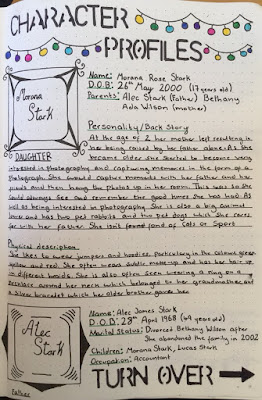 CHARACTER
PROFILES
Morana
Stark
DAUGHTER
Name: Morana Rose Stark
D.O.B: 26th May 2000 (17 years old)
Parents: Alec Stark (Father) Bethany
Ada Wilson (mother)
Personality/Back Story
At the age of 2 her mother left resulting in
her being raised by her father alone. As she
became older she started to become very
interested in photography and capturing memories in the form of a
photograph. She would capture moments with her father and her
friends and then hang the photos up in her room. This was so she
could always see and remember the good times she has had. As
well as being interested in photography She is also a big animal
lover and has two pet rabbits and two pet dogs which She cares
for with her father. She isn't found fond of Cats or Sport
Physical description
She likes to wear jumpers and hoodies, particularly in the colours green
yellow and red. She often wears subtle make-up and has her hair up
in different braids. She is also often seen wearing a ring on a
necklace around her neck which belonged to her grandmother, and
a silver bracelet which her older brother gave her
Alec
Stark
Father
Name: Alec James Stark
D.O.B: 28th April 1968 (49 years old)
Marital Status: Divorced Bethany Wilson after
She abandoned the family in 2002
Children: Morana Stark, Lucas Stark
Occupation: Accountant
TURN OVER